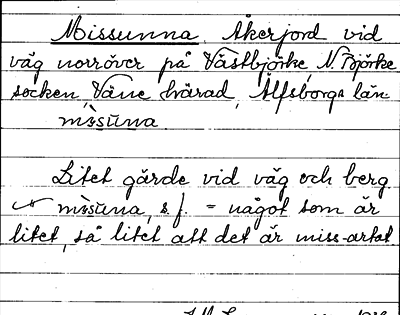 Missunna, Åkerjord vid
väg norröver på Västbjörke, N. Björke
socken Väne härad, Älfsborgs län
mı̀sūna

Litet gärde vid väg och berg
mı̀sūna, s. f. = något som är
litet, så litet att det är miss-artat